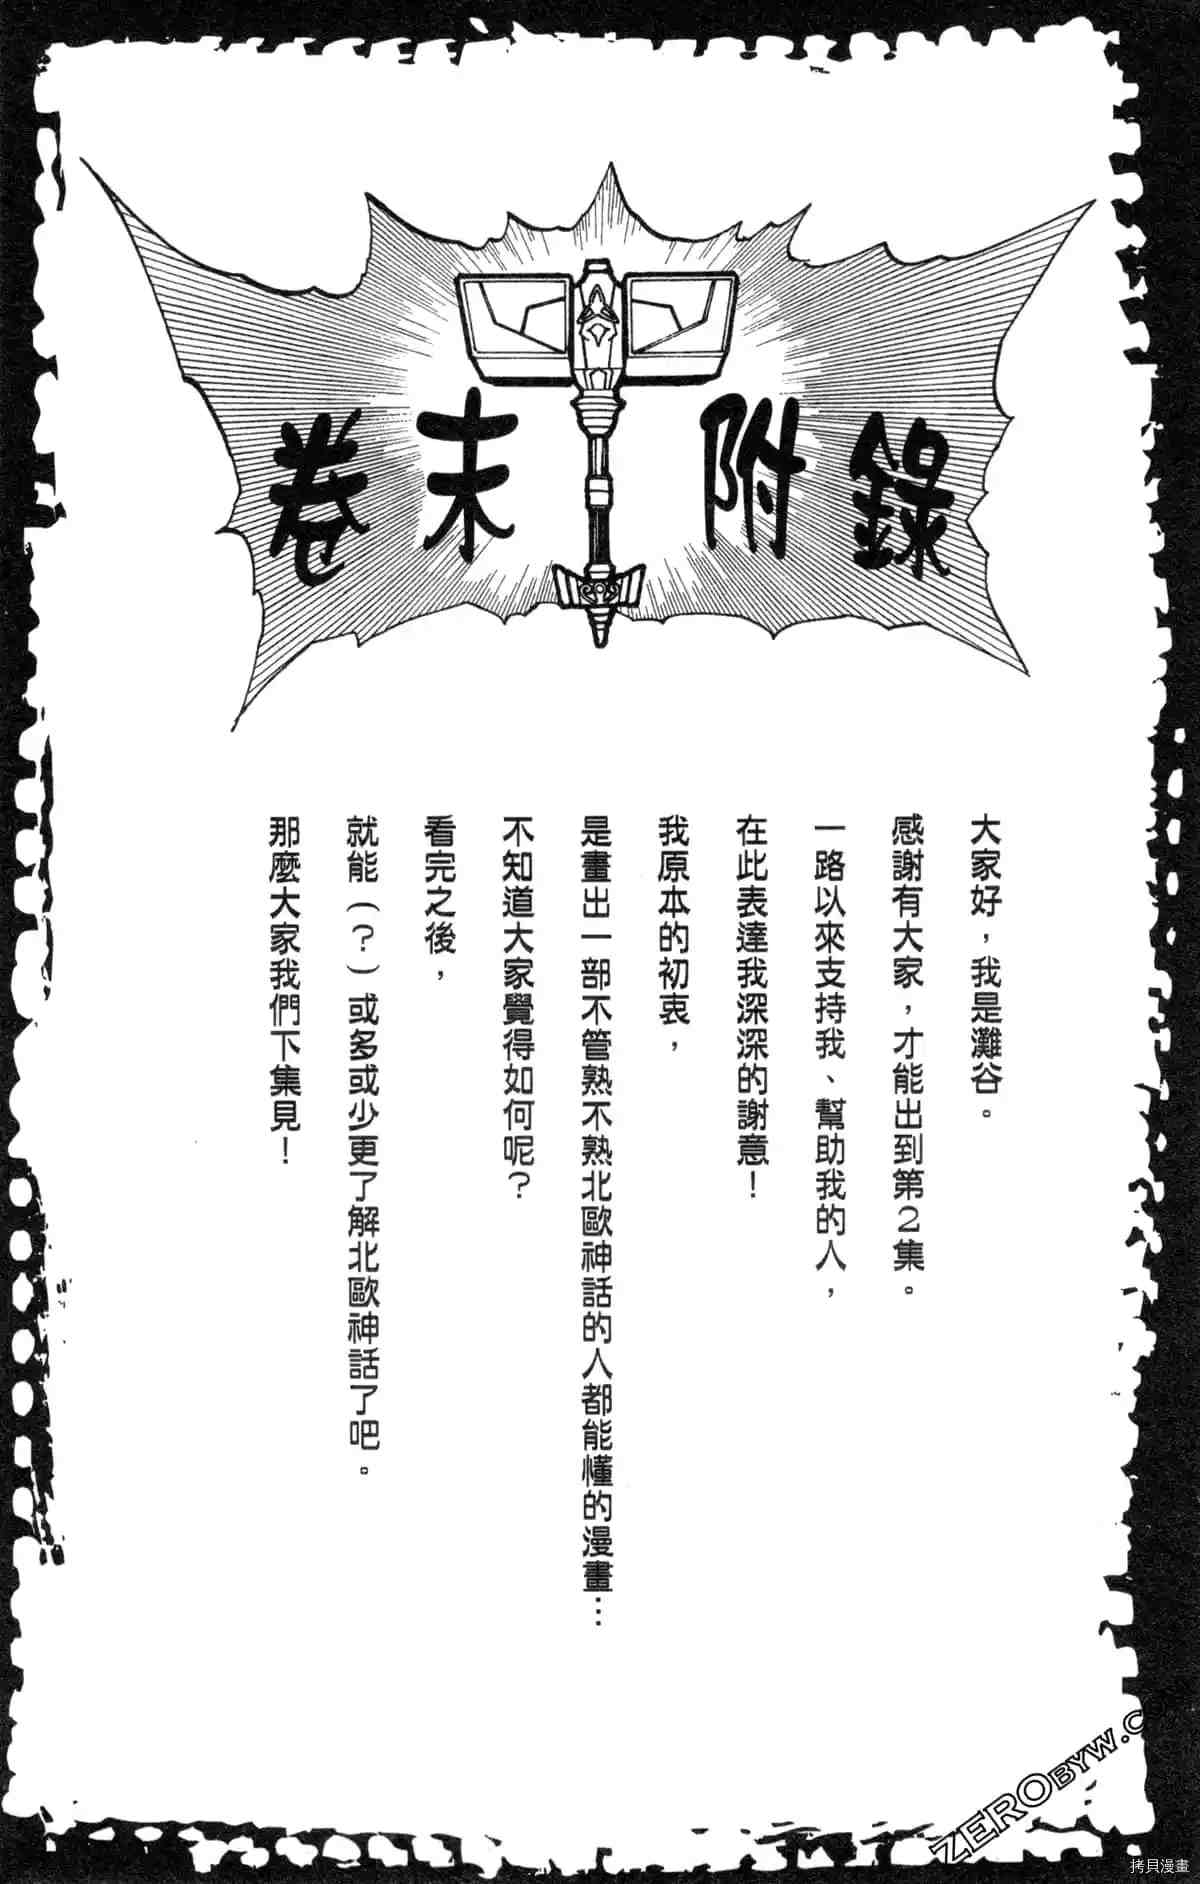 卷末附錄
大家好，我是灘谷。
感謝有大家，才能出到第2集。
一路以來支持我、幫助我的人，
在此表達我深深的謝意！
我原本的初衷，
是畫出一部不管熟不熟北歐神話的人都能懂的漫畫…
不知道大家覺得如何呢？
看完之後，
就能（？）或多或少更了解北歐神話了吧。
那麼大家我們下集見！
ZEROBYW.C
拷貝漫畫